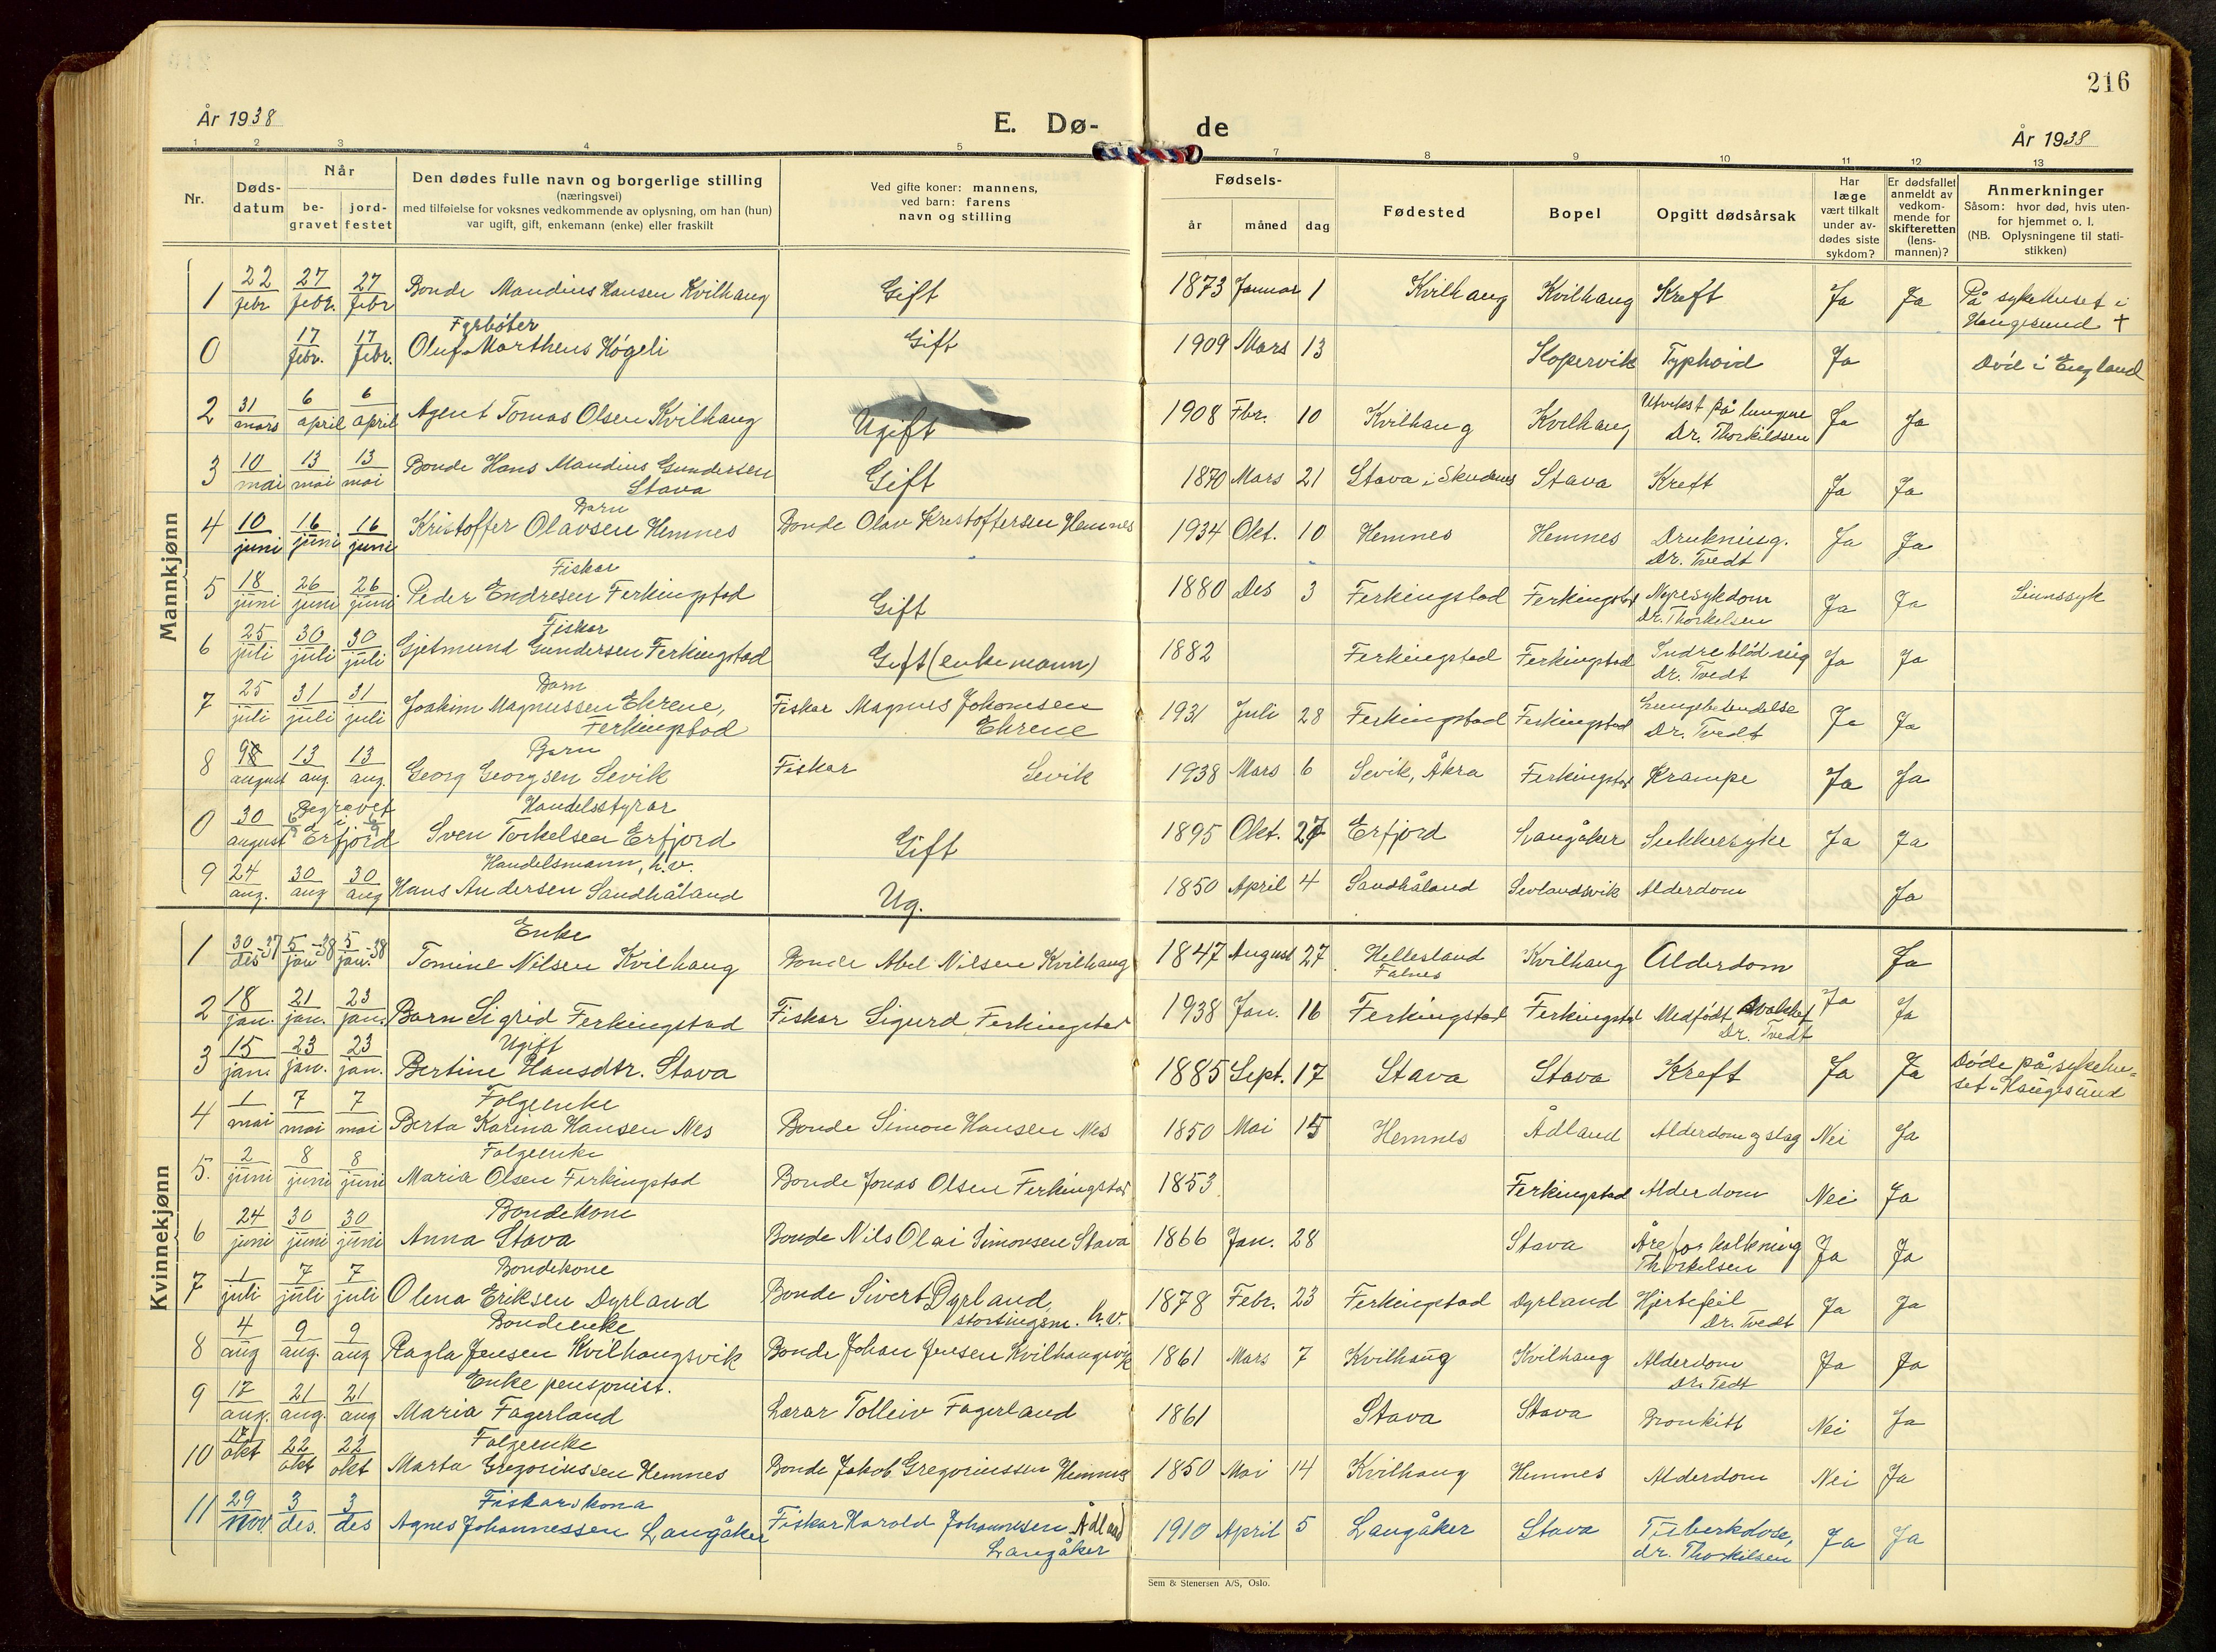 216
År 1938
E. Dø-
de
År 1938
1 2 3 4 5 7 8 9 10 11 12 13
Nr.
Døds-
datum
Når
be-
gravet
jord-
festet
Den dødes fulle navn og borgerlige stilling
(næringsvei)
med tilføielse for voksnes vedkommende av oplysning, om han (hun)
var ugift, gift, enkemann (enke) eller fraskilt
Ved gifte koner: mannens,
ved barn: farens
navn og stilling
Fødsels-
år måned dag
Fødested
Bopel
Opgitt dødsårsak
Har
læge
vært tilkalt
under av-
dødes siste
sykdom?
Er dødsfallet
anmeldt av
vedkom-
mende for
skifteretten
(lens-
mannen)?
Anmerkninger
Såsom: hvor død, hvis uten-
for hjemmet o. l.
(NB. Oplysningene til stati-
stikken)
Mannkjønn
1 22 febr 27 febr. 27 febr Bonde Mandius Hansen Kvilhaug Gift 1873 Januar 1 Kvilhaug Kvilhaug Kreft Ja Ja På sykehuset i
Haugesund +
Fyrbøter
0 17 febr. 17 febr. Oluf Marthens Høgeli Gift 1909 Mars 13 Kopervik Typhoid Ja Død i England
2 31 mars 6 april 6 april Agent Tomas Olsen Kvilhaug Ugift 1908 Fbr. 10 Kvilhaug Kvilhaug Utvekst på lungene Ja Ja
Dr. Thorkildsen
3 10 mai 13 mai 13 mai Bonde Hans Mandius Gundersen Gift 1870 Mars 21 Stava i Skudenes Stava Kreft Ja Ja
Stava
Barn
4 10 juni 16 juni 16 juni Kristoffer Olavsen Hemnes Bonde Olav Kristoffersen Hemnes 1934 Okt. 10 Hemnes Hemnes Drukning. Ja Ja
Dr. Tvedt
Fiskar
5 18 juni 26 juni 26 juni Peder Endresen Ferkingstad Gift 1880 Des 3 Ferkingstad Ferkingstad Nyresykdom Ja Ja Sinnssyk
Dr. Thorkelsen
Fiskar
6 25 juli 30 juli 30 juli Gjetmund Gundersen Ferkingstad Gift (enkemann) 1882 Ferkingstad Ferkingstad Indre blødning Ja Ja
Dr. Tvedt
Barn
7 25 juli 31 juli 31 juli Joakim Magnussen Ehrene, Fiskar Magnus Johansen 1931 Juli 28 Ferkingstad Ferkingstad Lungebetendelse Ja Ja
Ferkingstad Ehrene Dr. Tvedt
Barn
8 9 august 13 aug. 13 aug. Georg Georgsen Sevik Fiskar Sevik 1938 Mars 6 Sevik, Åkra Ferkingstad Krampe Ja Ja
Handelsstyrar
0 30 august Begravet i Erfjord Sven Torkelsen Erfjord Gift 1895 Okt. 27 Erfjord Langåker Sukkersyke Ja Ja
Handelsmann, h.v.
9 24 aug. 30 aug 30 aug Hans Andersen Sandhåland Ug. 1850 April 4 Sandhåland Sevlandsvik Alderdom Ja
Kvinnekjønn
Enke
1 30 des -37 5 jan -38 5 jan. -38 Tomine Nilsen Kvilhaug Bonde Abel Nilsen Kvilhaug 1847 August 27 Hellesland Kvilhaug Alderdom Ja
Falnes
2 18 jan. 21 jan. 23 jan. Barn Sigrid Ferkingstad Fiskar Sigurd Ferkingstad 1938 Jan. 16 Ferkingstad Ferkingstad Medfødt svakhet Ja Ja
Dr. Tvedt
Ugift
3 15 jan. 23 jan. 23 jan. Bertine Hansdtr. Stava 1885 Sept. 17 Stava Stava Kreft Ja Ja Døde på sykehu=
set i Haugesund
Folgeenke
4 1 mai 7 mai 7 mai Berta Karina Hansen Nes Bonde Simon Hansen Nes 1850 Mai 15 Hemnes Ådland Alderdom og slag Nei Ja
Folgeenke
5. 2 juni 8 juni 8 juni Maria Olsen Ferkingstad Bonde Jonas Olsen Ferkingstad 1853 Ferkingstad Alderdom Nei Ja
Bondekone
6 24 juni 30 juni 30 juni Anna Stava Bonde Nils Olai Simonsen Stava 1866 Jan. 28 Stava Åreforkalkning Ja Ja
Thorkelsen
Bondekone
7 1 juli 7 juli 7 juli Olena Eriksen Dyrland Bonde Sivert Dyrland, 1878 Febr. 23 Ferkingstad Dyrland Hjertefeil Ja Ja
stortingsm. h.v. Dr. Tvedt
Bondeenke
8 4 aug 9 aug. 9 aug Ragla Jensen Kvilhaugsvik Bonde Johan Jensen Kvilhaugsvik 1861 Mars 7 Kvilhaug Kvilhaug Alderdom Ja Ja
Dr. Tedt
Enke pensjonist.
9 17 aug. 21 aug. 21 aug Maria Fagerland Lærar Tolleiv Fagerland 1861 Stava Stava Bronkitt Nei Ja
Folgeenke
10 17 okt 22 okt 22 okt Marta Gregoriussen Hemnes Bonde Jakob Gregoriussen Hemnes 1850 Mai 14 Kvilhaug Hemnes Alderdom Nei Ja
Fiskarskona
11 29 nov. 3 des. 3 des Agnes Johannessen Langåker Fiskar Harald Johannesen Ådland 1910 April 5 Langåker Stava Tuberkulose, Ja Ja
Langåker dr. Thorkilsen
Sem & Stenersen A/S, Oslo.